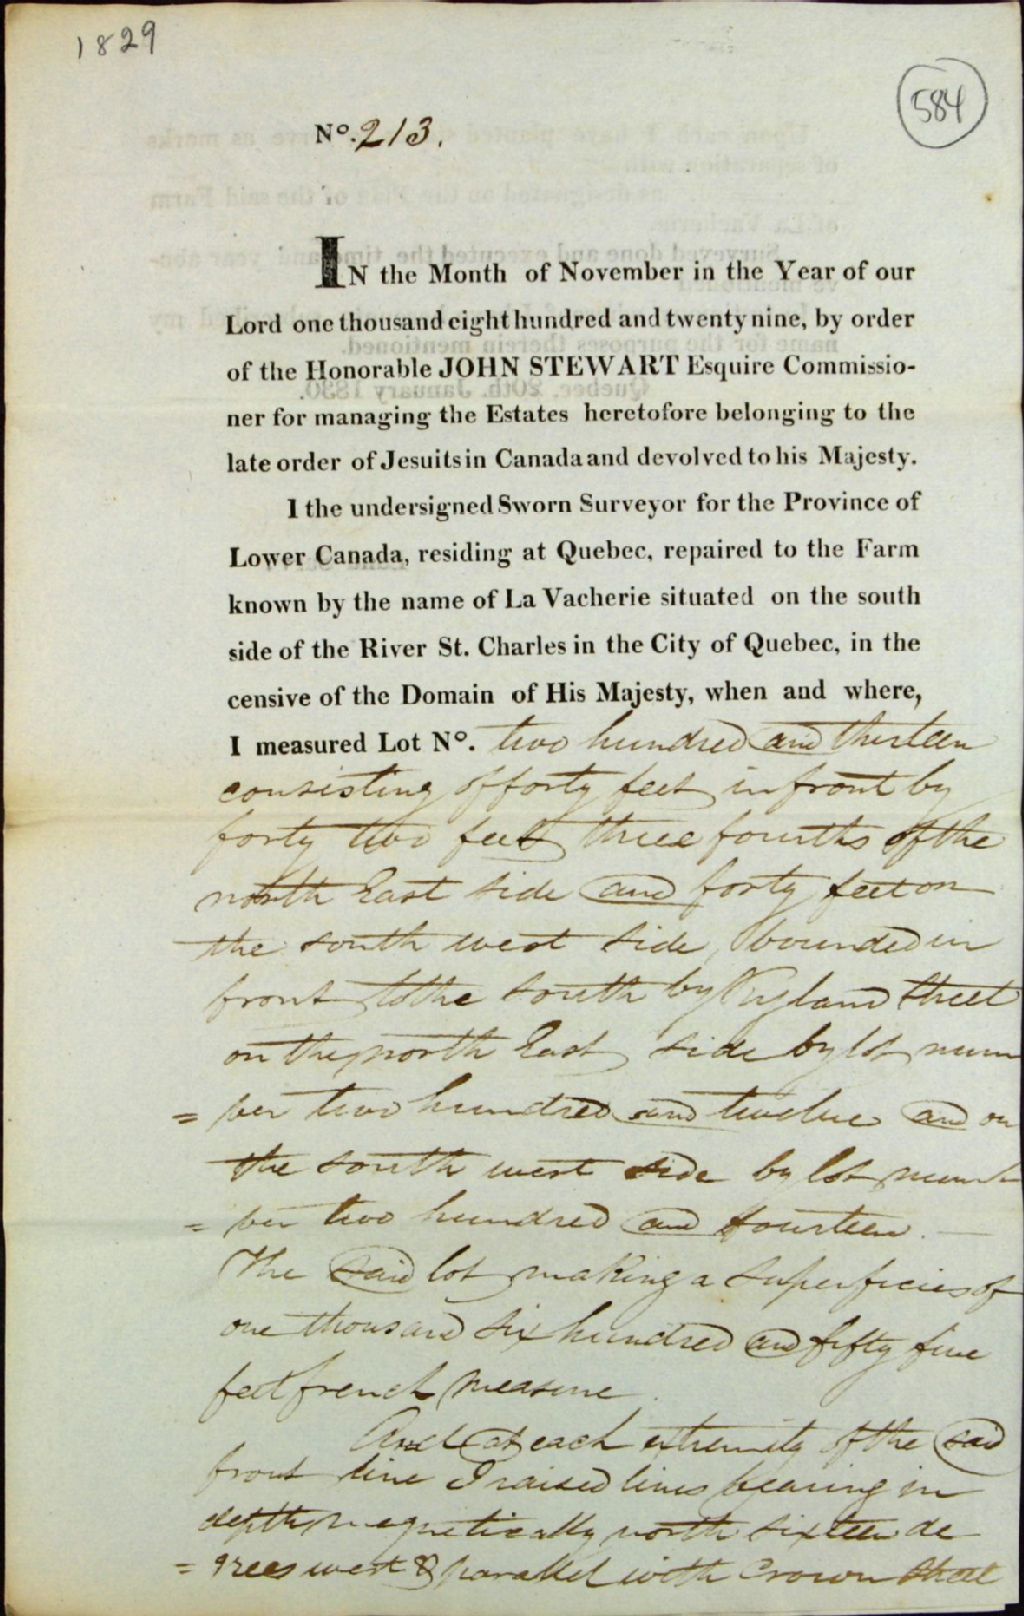 1829
584
No. 213.
IN the Month of November in the Year of our
Lord one thousand eight hundred and twenty nine, by order
of the Honorable JOHN STEWART Esquire Commissio-
ner for managing the Estates heretofore belonging to the
late order of Jesuits in Canada and devolved to his Majesty.
I the undersigned Sworn Surveyor for the Province of
Lower Canada, residing at Quebec, repaired to the Farm
known by the name of La Vacherie situated on the south
side of the River St. Charles in the City of Quebec, in the
censive of the Domain of His Majesty, when and where,
I measured Lot No. two hundred and thirteen
consisting of forty feet in front by
forty two feet three fourths of the
north East side and forty feet on
the south west side, bounded in
front to the south by Ryland Street
on the north East side by lot num
= ber two hundred and twelve and on
the south west side by lot num
= ber two hundred and fourteen.
The said lot making a superficies of
one thousand six hundred and fifty five
feet french measure.
And at each extremity of the said
front line I raised lines bearing in
depth magnetically north sixteen de
= grees west & parallel with Crown Street